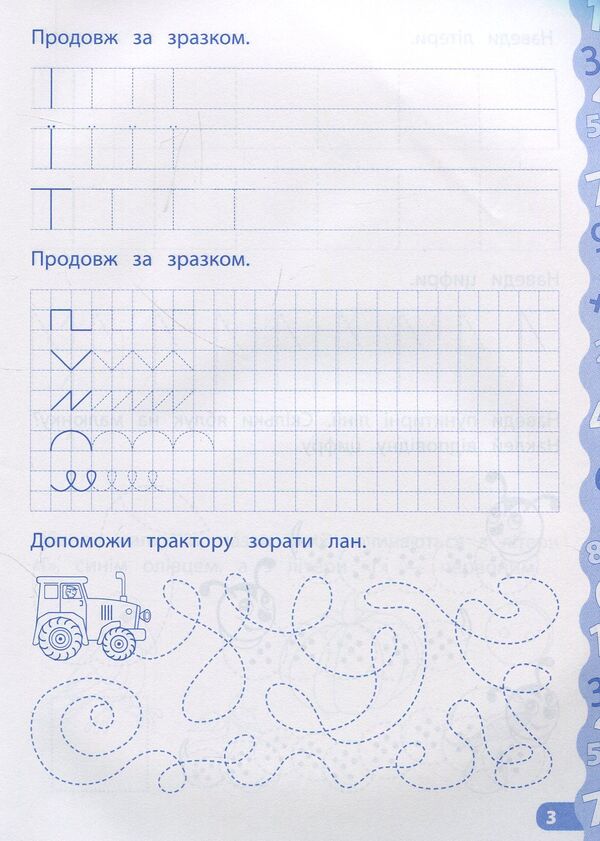 Продовж за зразком.
І
Ї
Т
Продовж за зразком.
Допоможи трактору зорати лан.
3